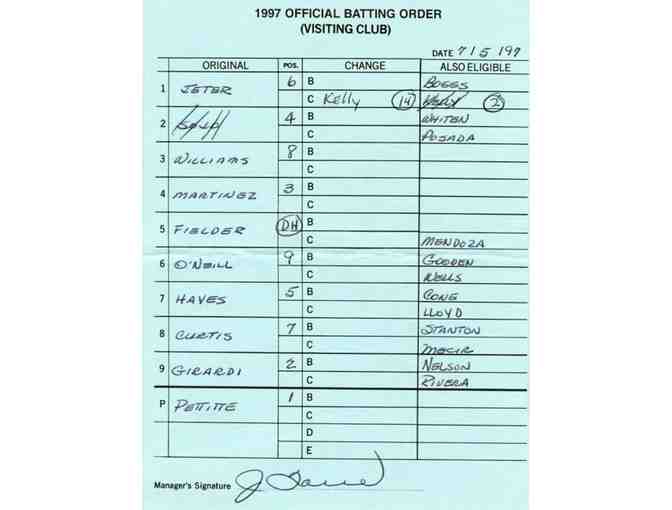 1997 OFFICIAL BATTING ORDER
(VISITING CLUB)
DATE 7/5/97
ORIGINAL POS. CHANGE ALSO ELIGIBLE
1 JETER 6 B BOGGS
C Kelly 14 2
2 4 B WHITEN
C POSADA
3 WILLIAMS 8 B
C
4 MARTINEZ 3 B
C
5 FIELDER DH B
C MENDOZA
6 O'NEILL 9 B GOODEN
C WELLS
7 HAYES 5 B CONE
C LLOYD
8 CURTIS 7 B STANTON
C MECIR
9 GIRARDI 2 B NELSON
C RIVERA
P PETTITTE 1 B
C
D
E
Manager's Signature